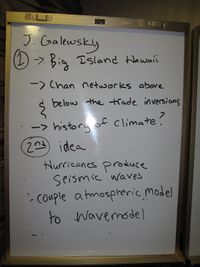 J. Galewsky
① → Big Island Hawaii
→ Chan networks above
& below the trade inversions
→ history of climate?
2nd idea
Hurricanes produce
Seismic waves
∴ couple atmospheric model
to wavemodel